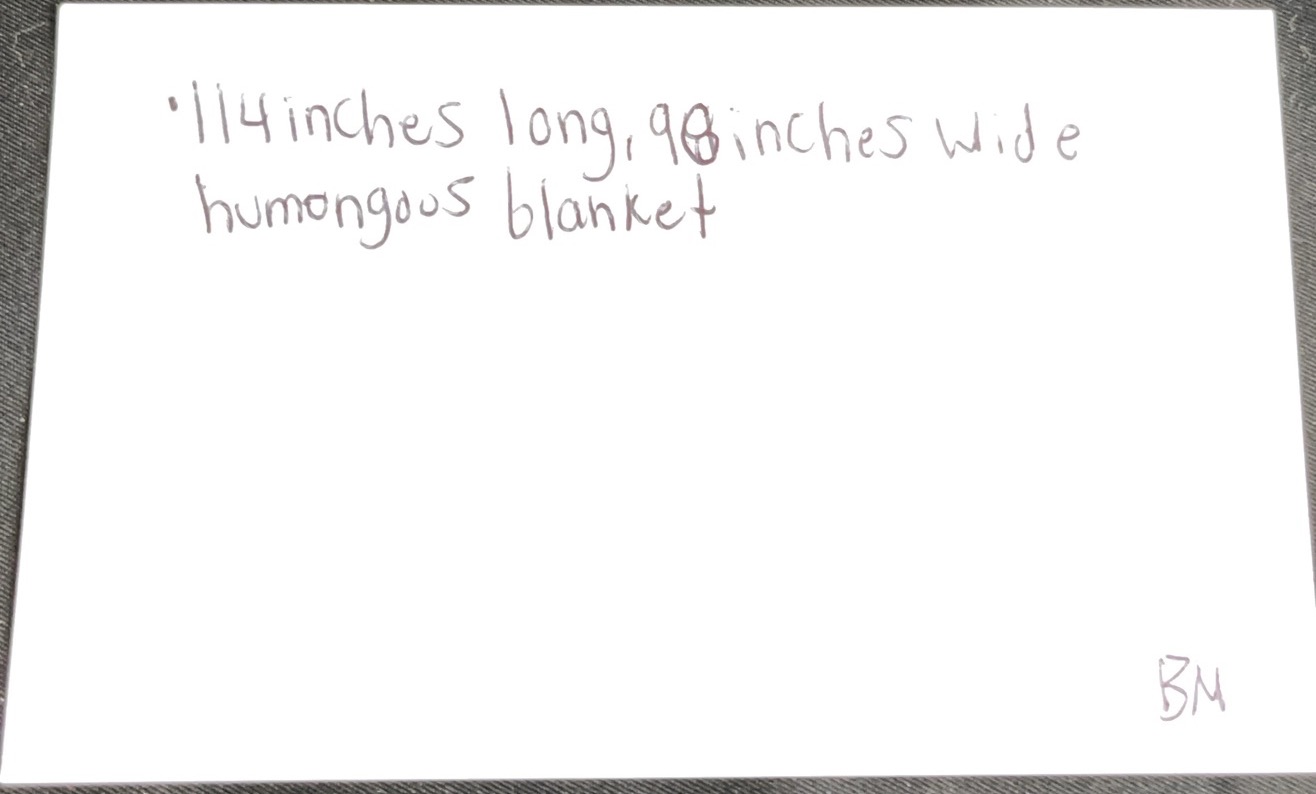 ·114 inches long, 98 inches wide
humongous blanket
BM